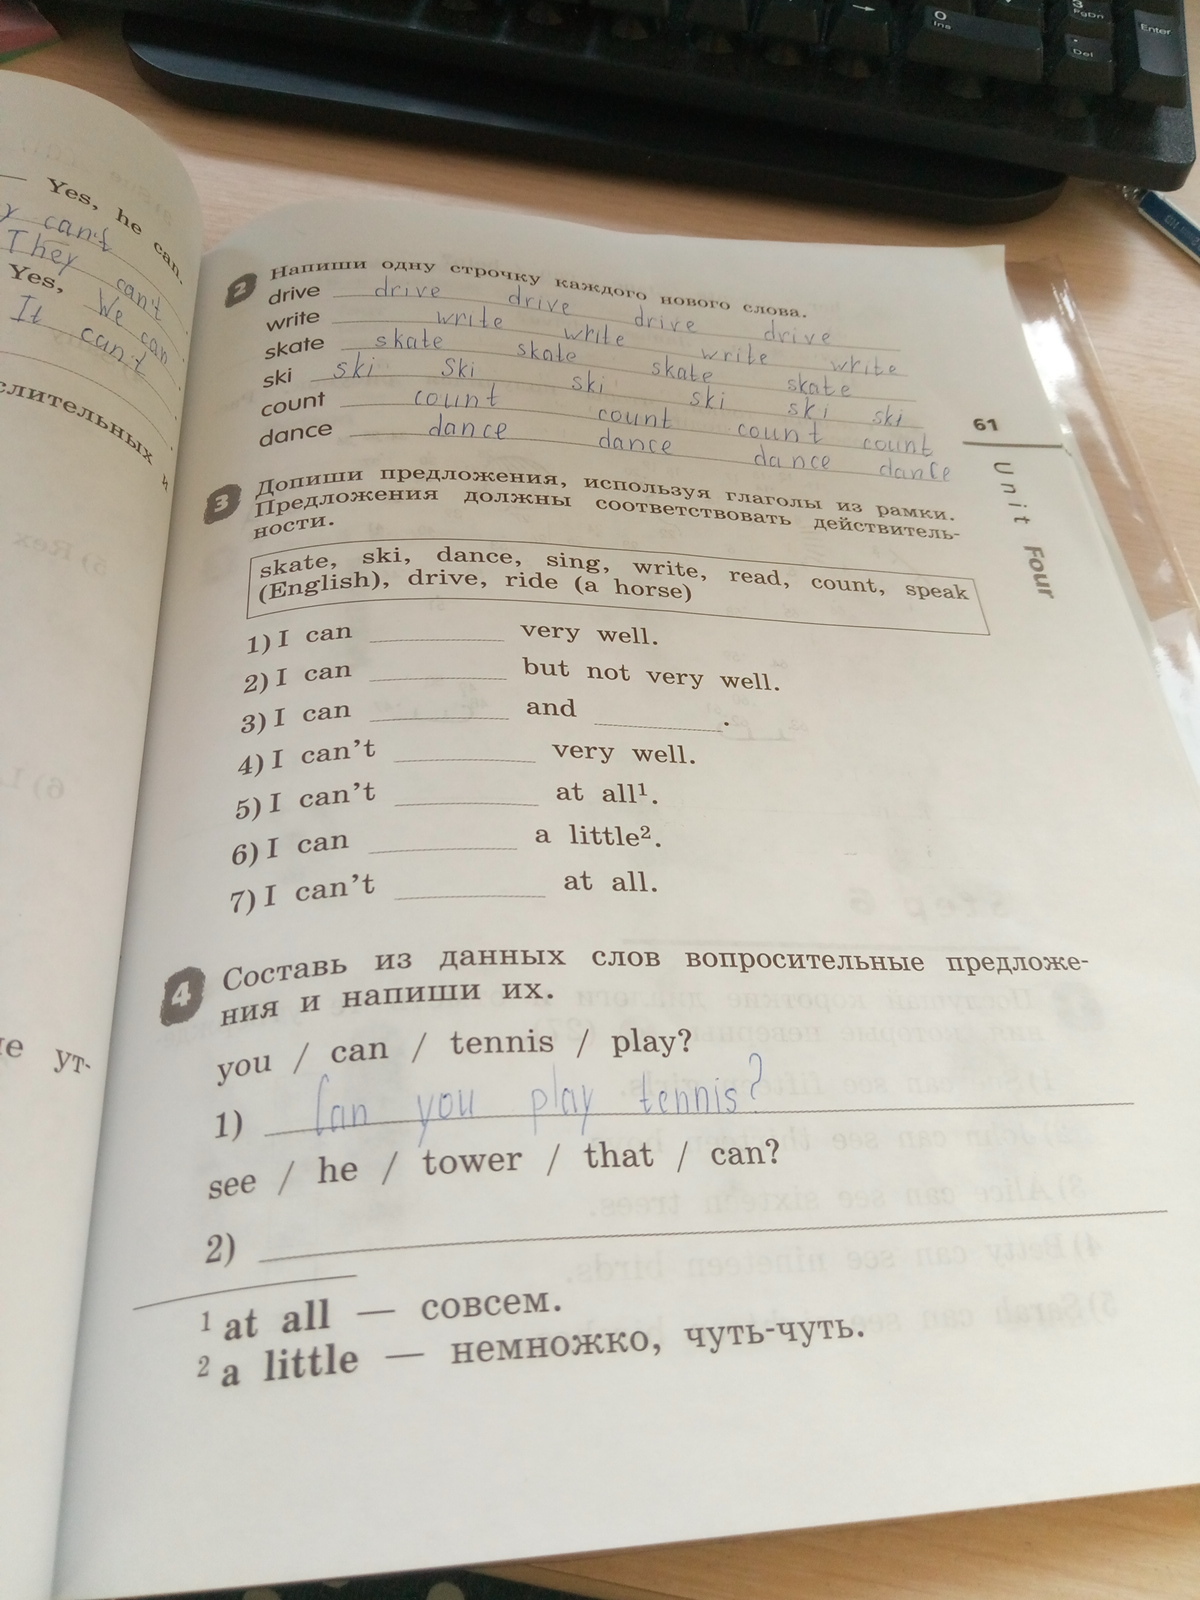 Yes, he can.
can't
They can't
Yes, We can
It can't
слительных и
2 Напиши одну строчку каждого нового слова.
drive drive drive drive drive
write write write write write
skate skate skate skate skate
ski ski Ski ski ski ski ski
count count count count count
dance dance dance dance dance
61
Unit Four
3 Допиши предложения, используя глаголы из рамки.
Предложения должны соответствовать действитель-
ности.
skate, ski, dance, sing, write, read, count, speak
(English), drive, ride (a horse)
1) I can very well.
2) I can but not very well.
3) I can and .
4) I can't very well.
5) I can't at all¹.
6) I can a little².
7) I can't at all.
4 Составь из данных слов вопросительные предложе-
ния и напиши их.
you / can / tennis / play?
1) Can you play tennis?
see / he / tower / that / can?
2)
¹ at all — совсем.
² a little — немножко, чуть-чуть.
ут-
0
Ins
3
PgDn
.
Del
Enter